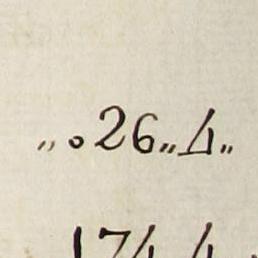 „ 026„ 4„
174 4